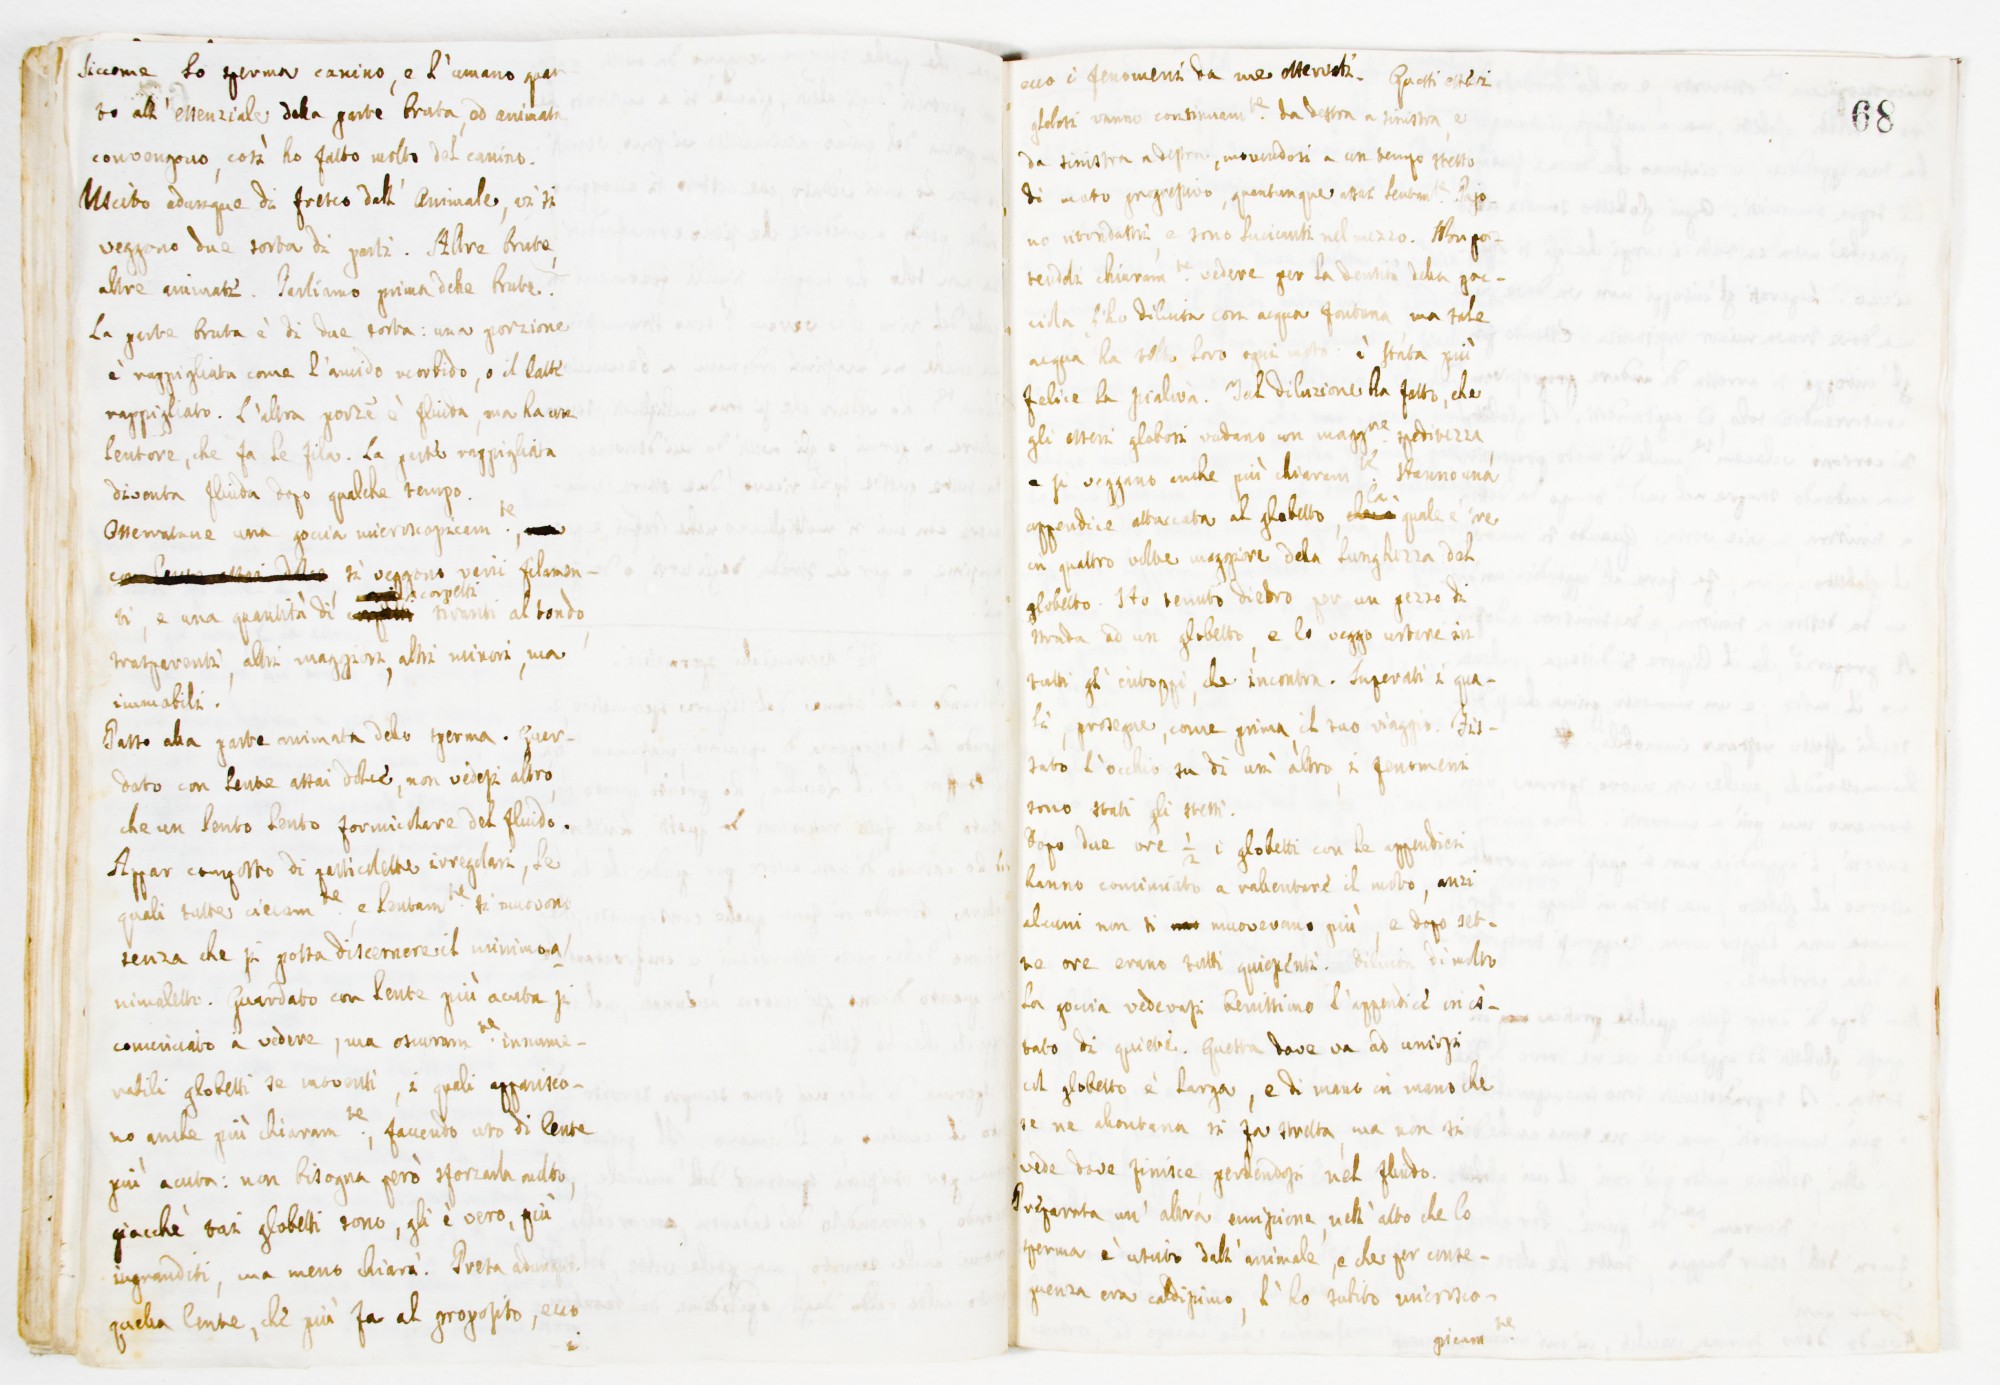 Siccome lo sperma canino, e l'umano quan
to all'essenziale della parte bruta, ed animata
convengono, così ho fatto molto del canino.
Uscito adunque di fresco dall'Animale, vi si
veggono due sorta di parti. Altre brute,
altre animate. Parliamo prima delle brute.
La parte bruta è di due sorta: una porzione
è rappigliata come l'amido morbido, o il latte
rappigliato. L'altra porze è fluida, ma ha un
lentore, che fa le fila. La parte rappigliata
diventa fluida dopo qualche tempo.
Osservatane una goccia microscopicamte,
con lente assai dolce si veggono varii filamen-
ti, e una quantità di corpetti tiranti al tondo,
trasparenti, altri maggiori, altri minori, ma
immobili.
Passo alla parte animata dello sperma. Guar-
dato con lente assai dolce, non vedesi altro,
che un lento lento formicolare del fluido.
Appar composto di particolette irregolari, le
quali tutte ciecamte e lentamte si muovono
senza che si possa discernere il minimo a
nimaletto. Guardato con lente più acuta si
cominciato a vedere, ma oscuramte innume-
rabili globetti se moventi, i quali apparisco-
no anche più chiaramte, facendo uso di lente
più acuta: non bisogna però sforzarla molto,
giacchè tasi globetti sono, gli è vero, più
ingranditi, ma meno chiari. Presa adunque
quella lente, che più fa al proposito, ecco
i
ecco i fenomeni da me osservati. Questi esseri
globosi vanno continuamte da destra a sinistra, e
da sinistra a destra, movendosi a un tempo stesso
di moto progressivo, quantunque assai lentamte. Pajo-
no ritondastri, e sono lucicanti nel mezzo. Non po-
tendoli chiaramte vedere per la densità della goc-
ciola l'ho diluita con acqua fontana, ma tale
acqua ha tolto loro ogni moto. è stata più
felice la scialiva. Tal diluzione ha fatto, che
gli esseri globosi vadano con maggre speditezza
e si veggano anche più chiaramte. Hanno una
appendice attaccata al globetto, la quale è tre
in quattro volte maggiore della lunghezza del
globetto. Ho tenuto dietro per un pezzo di
strada ad un globetto, e lo veggo urtare in
tutti gl'intoppi, che incontra. Superati i qua-
li, prosegue, come prima, il suo viaggio. Fis-
sato l'occhio su di un'altro, i fenomeni
sono stati gli stessi.
Dopo due ore 1/2 i globetti con le appendici
hanno cominciato a rallentare il moto, anzi
alcuni non si muovevano più, e dopo set-
te ore erano tutti quiescenti. Diluita di molto
la goccia vedevasi benissimo l'appendice in is-
tato di quiete. Questa dove va ad unirsi
col globetto è larga, e di mano in mano che
se ne allontana si fa stretta, ma non si
vede dove finisce perdendosi nel fluido.
Preparata un'altra emissione, nell'atto che lo
sperma è uscito dall'animale, e che per conse-
guenza era caldissimo, l'ho subito microsco-
picamte
68